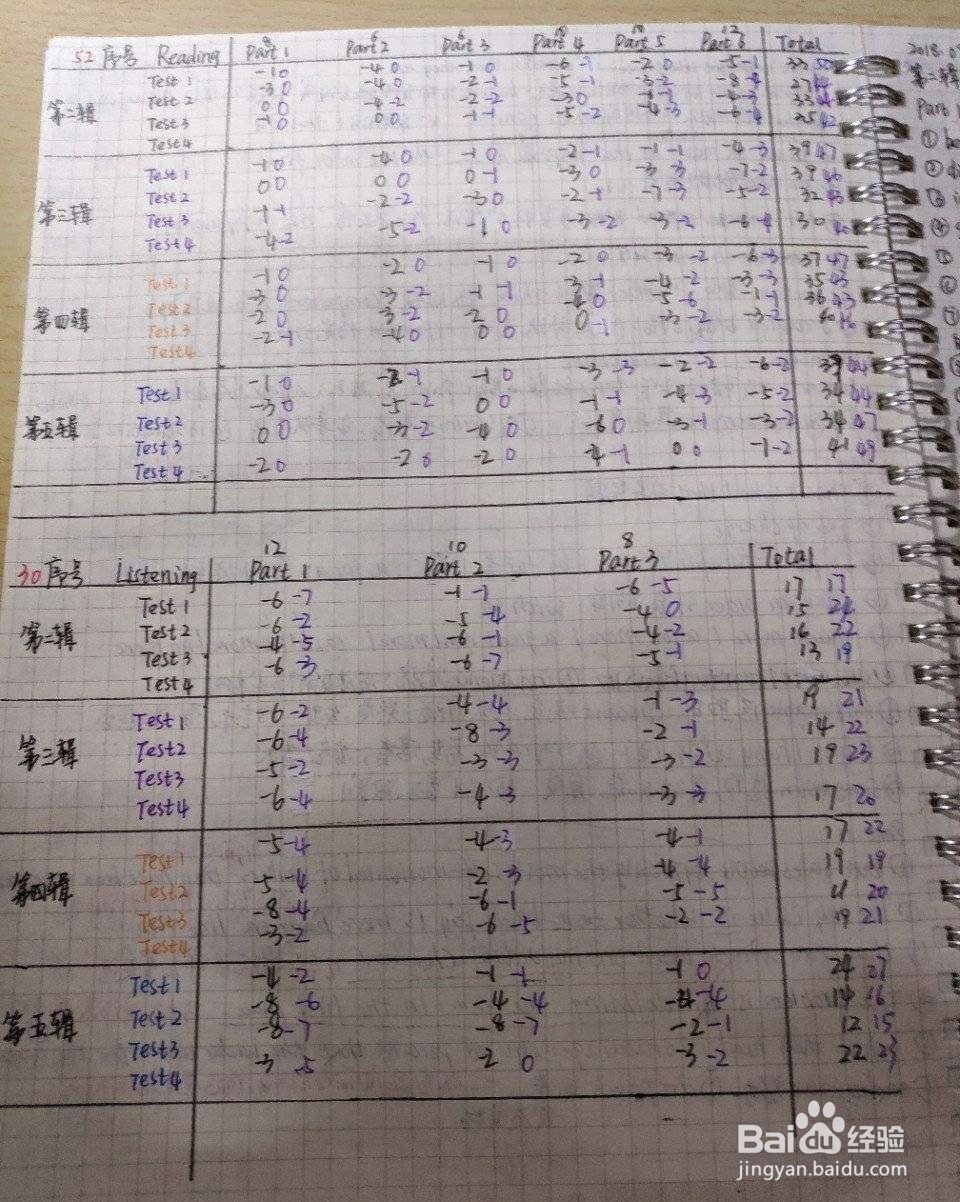 52 序号 Reading Part 1 Part 2 Part 3 Part 4 Part 5 Part 6 Total
第二辑
Test 1 -1 0 -4 0 -1 0 -6 -1 -2 0 -5 -1 33 50
Test 2 -3 0 -4 0 -2 -1 -5 -1 -3 -2
Test 3 0 0 -4 -2 -2 -2 -3 0
Test 4 -1 0 0 0 -1 -1 -5 -2 -4 -3
第三辑
Test 1 -1 0 -4 0 -1 0 -2 -1 -1 -1 -4 -3 39 47
Test 2 0 0 0 0 0 -1 -3 0 -3 -3 -7 -2 39 46
Test 3 -1 -1 -2 -2 -3 0 -2 -1 -7 -3 -5 -2 32
Test 4 -4 -2 -5 -2 -1 0 -3 -2 -3 -2 30 40
第四辑
Test 1 -1 0 -2 0 -1 0 -2 0 -3 -2 -6 -3 37 47
Test 2 -3 0 -3 -2 -1 -1 -3 -1 -4 -2 -3 -3 35 43
Test 3 -2 0 -3 -2 -2 0 -5 -6 -1 -1 36 43
Test 4 -2 -1 -4 0 0 0 0 -1 -3 -2 -3 -2
第五辑
Test 1 -1 0 -1 0 -3 -3 -2 -2 -6 -2
Test 2 -3 0 -5 -2 0 0 -1 -1 -4 -3 -5 -2 34 44
Test 3 0 0 -3 -2 -4 0 -6 0 -3 -1 -3 -2 34 47
Test 4 -2 0 -2 0 -2 0 -4 -1 0 0 -1 -2 41 49
12 10 8
30 序号 Listening Part 1 Part 2 Part 3 Total
第二辑
Test 1 -6 -7 -1 -1 -6 -5 17 17
Test 2 -6 -2 -5 -4 -4 0 15 24
Test 3 -4 -5 -6 -1 -4 -2 16 22
Test 4 -6 -3 -6 -7 -5 -1 13 19
第三辑
Test 1 -6 -2 -4 -4 -1 -3 19 21
Test 2 -6 -4 -8 -3 -2 -1 14 22
Test 3 -5 -2 -3 -3 -3 -2 19 23
Test 4 -6 -4 -4 -3 -3 -3 17 20
第四辑
Test 1 -5 -4 -4 -3 -4 -1 17 22
Test 2 -5 -4 -2 -3 -4 -4 19 19
Test 3 -8 -4 -6 -1 -5 -5 11 20
Test 4 -3 -2 -6 -5 -2 -2 19 21
第五辑
Test 1 -4 -2 -1 -1 -1 0 24 27
Test 2 -8 -6 -4 -4 -4 14 16
Test 3 -8 -7 -8 -7 -2 -1 12 15
Test 4 -3 -5 -2 0 -3 -2 22 23
Baidu 经验
jingyan.baidu.com